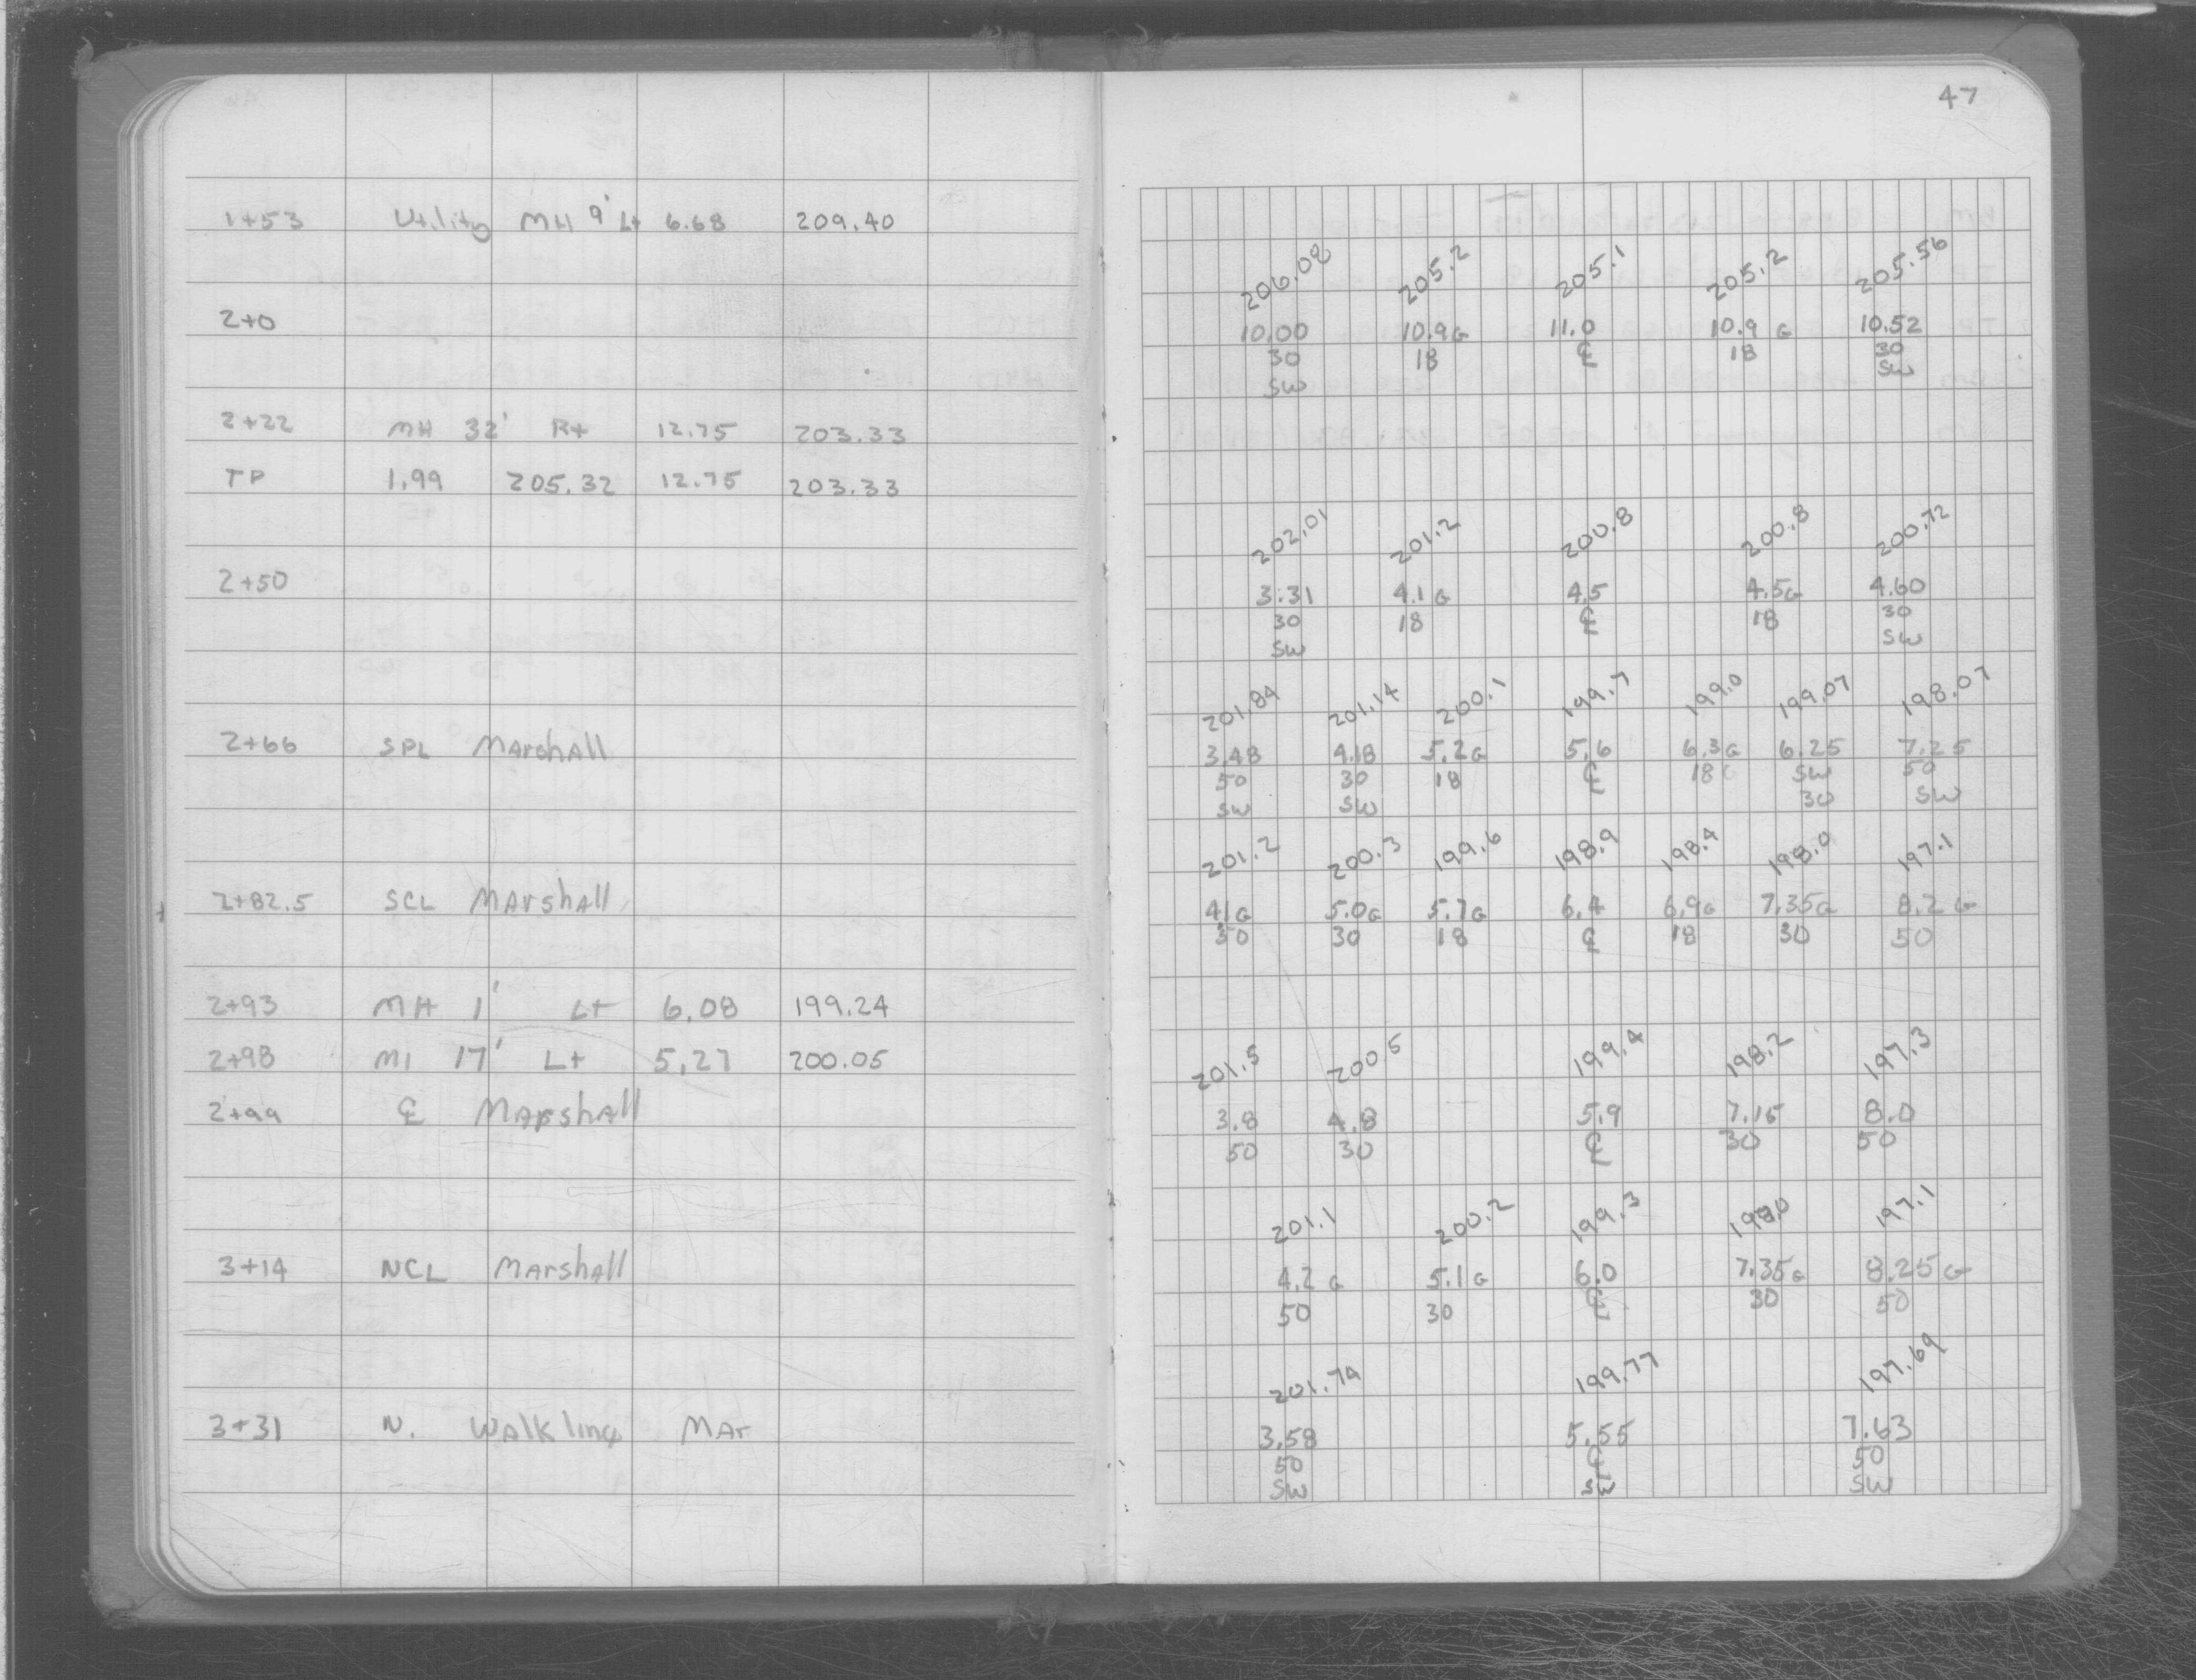 47
1+53 Utility MH 9' Lt 6.68 209.40
206.08 205.2 205.1 205.2 205.56
2+0 10.00 10.9G 11.0 10.9 G 10.52
30 18 ℄ 18 30
SW SW
2+22 MH 32' Rt 12.75 203.33
TP 1.99 205.32 12.75 203.33
202.01 201.2 200.8 200.8 200.72
2+50 3.31 4.1 G 4.5 4.5G 4.60
30 18 ℄ 18 30
SW SW
201.84 201.14 200.1 199.7 199.0 199.07 198.07
2+66 SPL Marshall 3.48 4.18 5.2G 5.6 6.3G 6.25 7.25
50 30 18 ℄ 18 SW 50
SW SW 30 SW
201.2 200.3 199.6 198.9 198.4 198.0 197.1
2+82.5 SCL Marshall 4.1G 5.0G 5.7G 6.4 6.9G 7.35G 8.2 G
50 30 18 ℄ 18 30 50
2+93 MH 1' Lt 6.08 199.24
2+98 MI 17' Lt 5.27 200.05
201.5 200.5 199.4 198.2 197.3
2+99 ℄ Marshall 3.8 4.8 5.9 7.15 8.0
50 30 ℄ 30 50
201.1 200.2 199.3 198.0 197.1
3+14 NCL Marshall 4.2 G 5.1 G 6.0 7.35G 8.25 G
50 30 ℄ 30 50
201.74 199.77 197.69
3+31 N. Walkling Mar 3.58 5.55 7.63
50 ℄ 50
SW SW SW